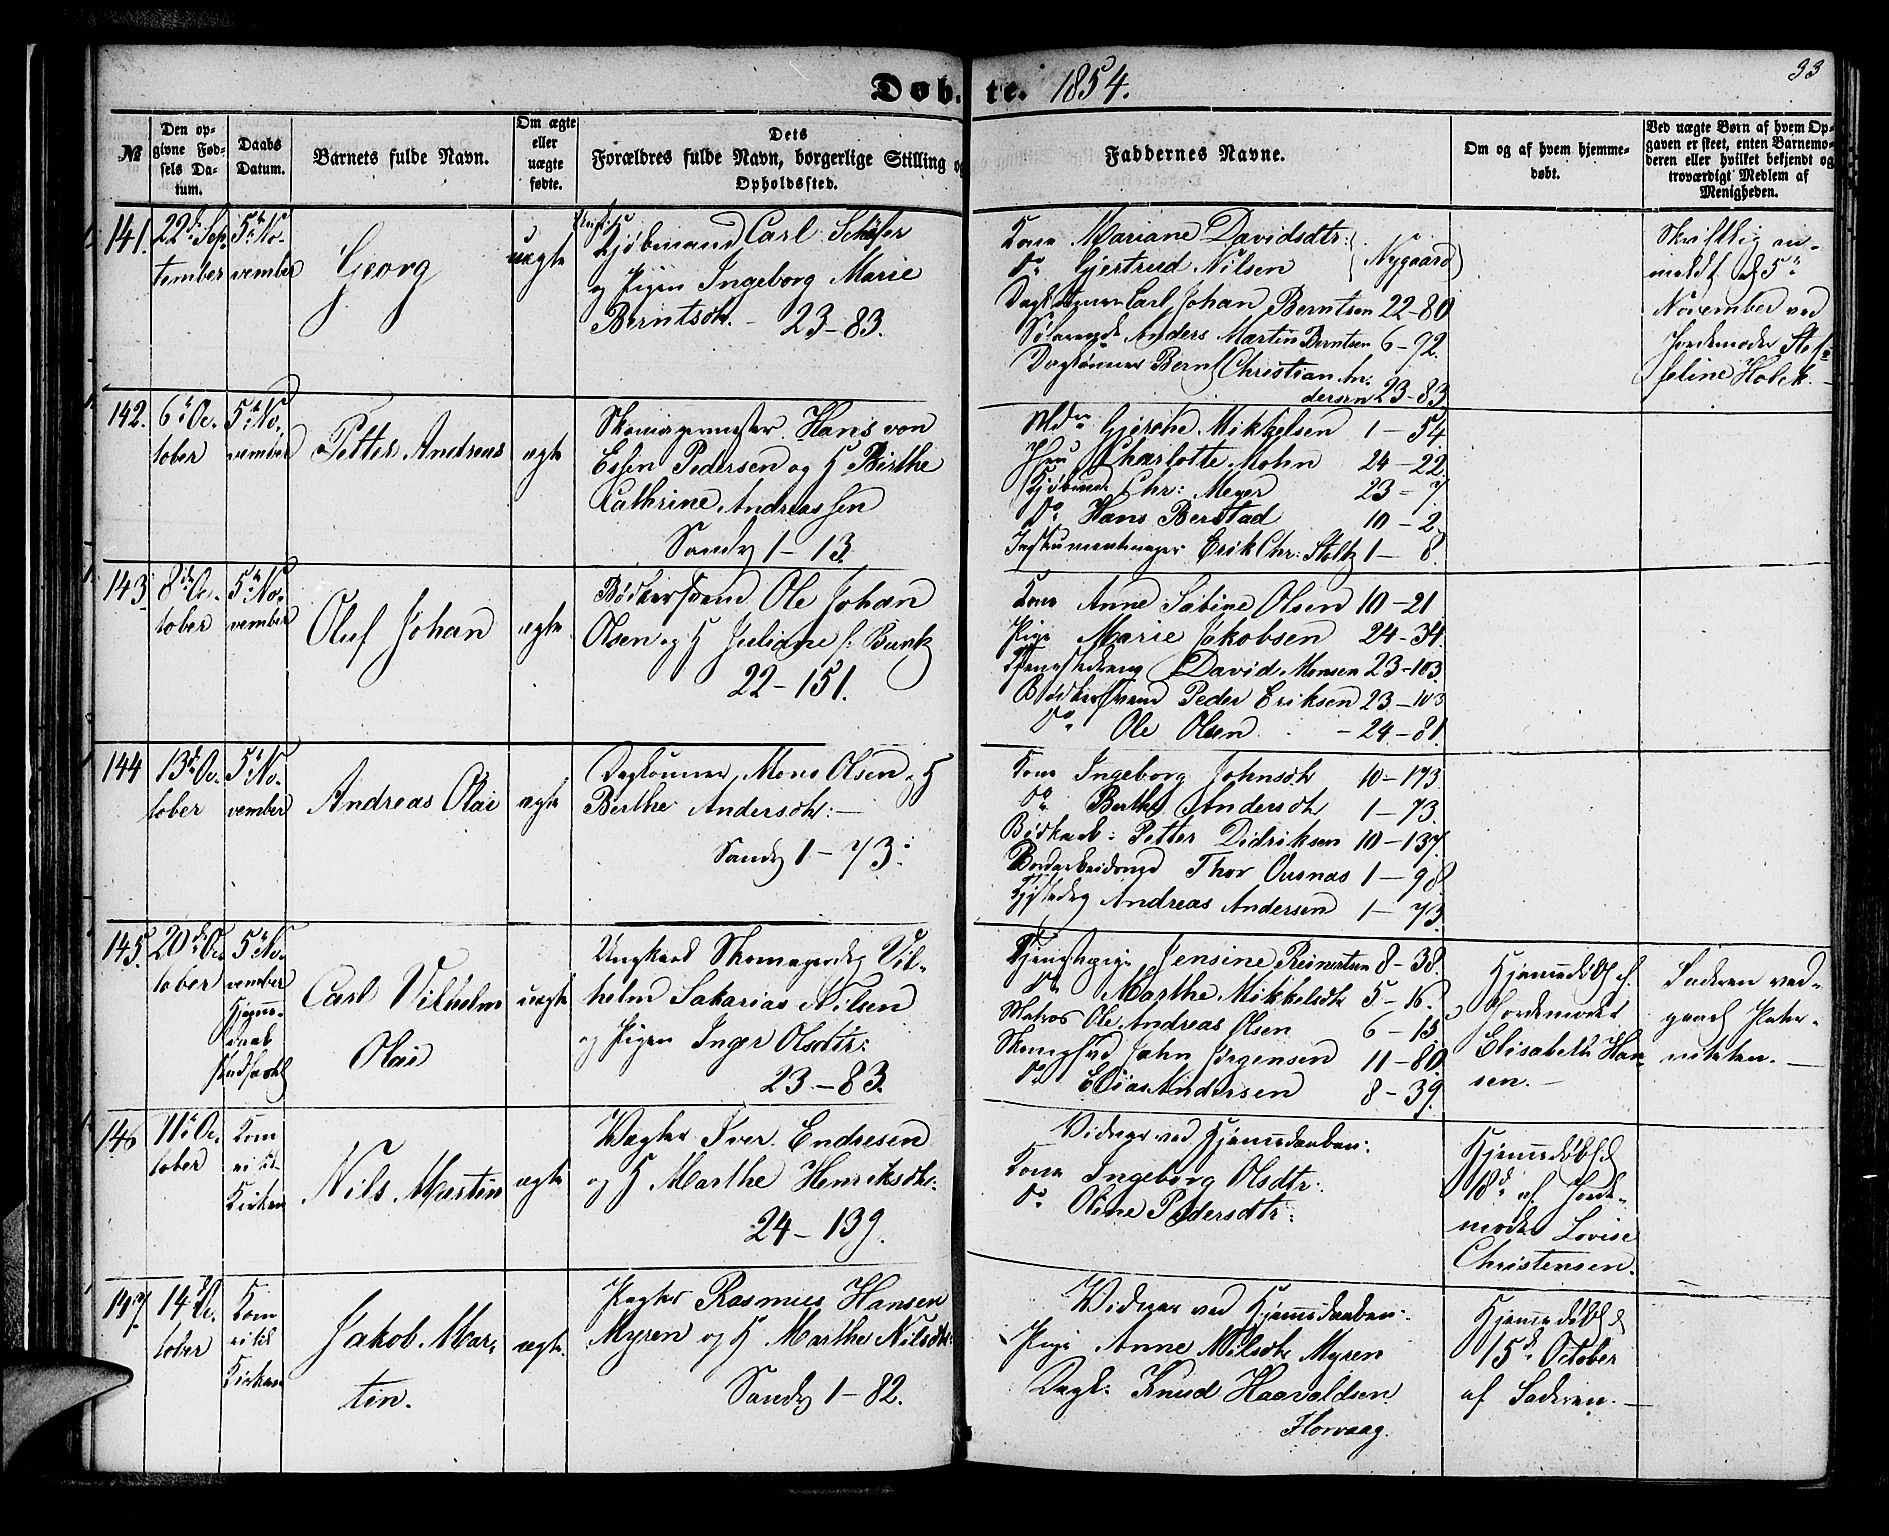 Døb- te. 1854.
33
№
Den op-
givne Fød-
sels Da-
tum.
Daabs
Datum.
Barnets fulde Navn.
Om ægte
eller
uægte
fødte.
Dets
Forældres fulde Navn, borgerlige Stilling og
Opholdssted.
Faddernes Navne.
Om og af hvem hjemme-
døbt.
Ved uægte Børn af hvem Op-
gaven er skeet, enten Barnemo-
deren eller hvilket bekjendt og
troværdigt Medlem af
Menigheden.
141.
22d Sep-
tember
5te No-
vember
Georg
uægte
Kjøbmand Carl Schäfer
og Pigen Ingeborg Marie
Berntsdtr. - 23-83.
Kone Mariane Davidsdtr:
do Gjertrud Nilsen
Nygaard
Carl Johan Berntsen 22-80
Anders Martin Berntsen 6-92.
Dagkonner Bernt Christian An-
dersen 23-83
Skriftlig an-
meldt d 5te
November ved
Jordemoder Stef-
feline Holck.
142.
6te Oc-
tober
5te No-
vember
Petter Andreas
ægte
Skomagermester Hans von
Essen Pedersen og K Birthe
Cathrine Andreassen
Sandv 1-13
Mikkelsen 1-54.
Charlotte Mohn 24-22
Kjøbmd Chr: Meyer 23-7
do Hans Berstad 10-2
Instrumentmager Erik Chr: Stoltz 1-8.
143.
8de Oc-
tober
5te No-
vember
Oluf Johan
ægte
Bødkersvend Ole Johan
Olsen og K Juliane f. Bunk
22-151.
Kone Anne Sabine Olsen 10-21
Pige Marie Jakobsen 24-34.
David Monsen 23-103.
Bødkersvend Peder Eriksen 23-103
do Ole Olsen - 24-81.
144
13de Oc-
tober
5te No-
vember
Andreas Olai
ægte
Dagkonner Mons Olsen og K
Berthe Andersdtr:
Sandv 1-73.
Kone Ingeborg Johnsdtr 10-173.
do Berthe Andersdtr 1-73.
Petter Didriksen 10-137
Bordarbeidsmd Thor Ousnas 1-98
Andreas Andersen 1-73.
145.
20de Oc-
tober
5te No-
vember
Hjemme-
daab
stadfæstet
Carl Vilhelm
Olai
uægte
Ungkarl Skomagerdrg Vil-
helm Sakarias Nilsen
og Pigen Inger Olsdtr:
23-83.
Tjenestepige Jensine Reinertsen 8-38.
do Marthe Mikkelsdtr 5-16.
Matros Ole Andreas Olsen 6-15
John Jørgensen 11-80.
do Elias Andersen 8-39.
Hjemmedøbt af
Jordemoder
Elisabeth Han-
sen.
Faderen ved-
gaaet Pater-
niteten.
146
11te Oc-
tober
Kom
ei til
Kirken
Nils Martin
ægte
Vægter Iver Endresen
og K Marthe Henriksdtr:
24-139.
Vidner ved Hjemmedaaben:
Kone Ingeborg Olsdtr:
do Oline Pedersdtr:
Hjemmedøbt d
18de af Jorde-
moder Lovise
Christensen.
147.
14de Oc-
tober
Kom
ei til
Kirken
Jakob Mar-
tin.
ægte.
Rasmus Hansen
Myren og K Marthe Nilsdtr:
Sandv 1-82.
Vidner ved Hjemmedaaben:
Pige Anne Nilsdtr Myren
Dagk: Knud Haavaldsen
Florvaag.
Hjemmedøbt d
15de October
af Faderen.